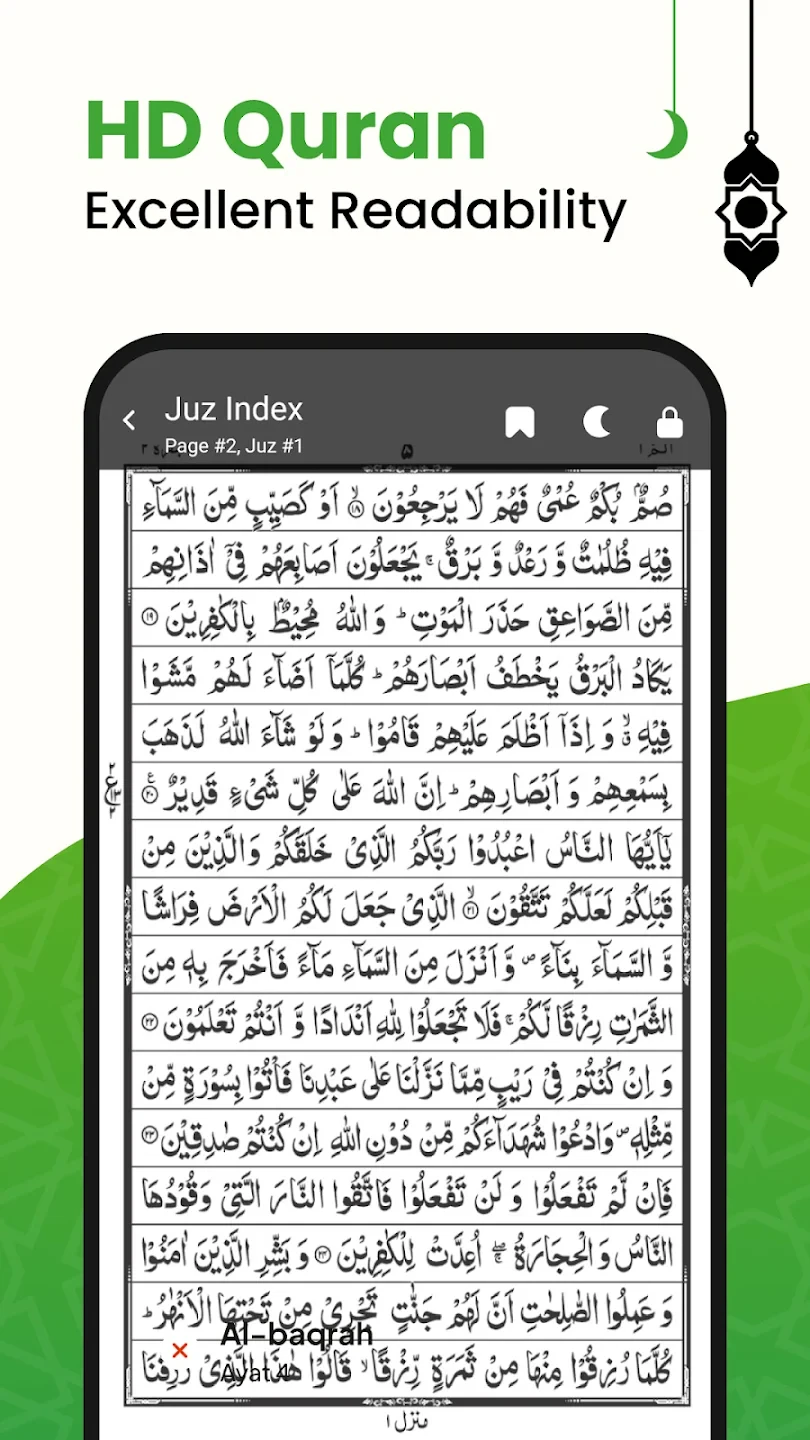 HD Quran
Excellent Readability
Juz Index
Page #2, Juz #1
صُمٌّۢ بُكْمٌ عُمْیٌ فَهُمْ لَا یَرْجِعُوْنَ ﴿۱۸﴾ اَوْ كَصَیِّبٍ مِّنَ السَّمَآءِ
فِیْهِ ظُلُمٰتٌ وَّ رَعْدٌ وَّ بَرْقٌ ۚ یَجْعَلُوْنَ اَصَابِعَهُمْ فِیْۤ اٰذَانِهِمْ
مِّنَ الصَّوَاعِقِ حَذَرَ الْمَوْتِ ؕ وَ اللّٰهُ مُحِیْطٌۢ بِالْكٰفِرِیْنَ ﴿۱۹﴾
یَكَادُ الْبَرْقُ یَخْطَفُ اَبْصَارَهُمْ ؕ كُلَّمَاۤ اَضَآءَ لَهُمْ مَّشَوْا
فِیْهِ ۙۗ وَ اِذَاۤ اَظْلَمَ عَلَیْهِمْ قَامُوْا ؕ وَ لَوْ شَآءَ اللّٰهُ لَذَهَبَ
بِسَمْعِهِمْ وَ اَبْصَارِهِمْ ؕ اِنَّ اللّٰهَ عَلٰی كُلِّ شَیْءٍ قَدِیْرٌ ﴿۲۰﴾
یٰۤاَیُّهَا النَّاسُ اعْبُدُوْا رَبَّكُمُ الَّذِیْ خَلَقَكُمْ وَالَّذِیْنَ مِنْ
قَبْلِكُمْ لَعَلَّكُمْ تَتَّقُوْنَ ﴿۲۱﴾ الَّذِیْ جَعَلَ لَكُمُ الْاَرْضَ فِرَاشًا
وَّ السَّمَآءَ بِنَآءً ۪ وَّ اَنْزَلَ مِنَ السَّمَآءِ مَآءً فَاَخْرَجَ بِهٖ مِنَ
الثَّمَرٰتِ رِزْقًا لَّكُمْ ۚ فَلَا تَجْعَلُوْا لِلّٰهِ اَنْدَادًا وَّ اَنْتُمْ تَعْلَمُوْنَ ﴿۲۲﴾
وَ اِنْ كُنْتُمْ فِیْ رَیْبٍ مِّمَّا نَزَّلْنَا عَلٰی عَبْدِنَا فَاْتُوْا بِسُوْرَةٍ مِّنْ
مِّثْلِهٖ ۪ وَادْعُوْا شُهَدَآءَكُمْ مِّنْ دُوْنِ اللّٰهِ اِنْ كُنْتُمْ صٰدِقِیْنَ ﴿۲۳﴾
فَاِنْ لَّمْ تَفْعَلُوْا وَ لَنْ تَفْعَلُوْا فَاتَّقُوا النَّارَ الَّتِیْ وَقُوْدُهَا
النَّاسُ وَ الْحِجَارَةُ ۖۚ اُعِدَّتْ لِلْكٰفِرِیْنَ ﴿۲۴﴾ وَ بَشِّرِ الَّذِیْنَ اٰمَنُوْا
وَ عَمِلُوا الصّٰلِحٰتِ اَنَّ لَهُمْ جَنّٰتٍ تَجْرِیْ مِنْ تَحْتِهَا الْاَنْهٰرُ ؕ
Al-baqrah
كُلَّمَا رُزِقُوْا مِنْهَا مِنْ ثَمَرَةٍ رِّزْقًا ۙ قَالُوْا هٰذَا الَّذِیْ رُزِقْنَا
Ayat 4
منزل ۱